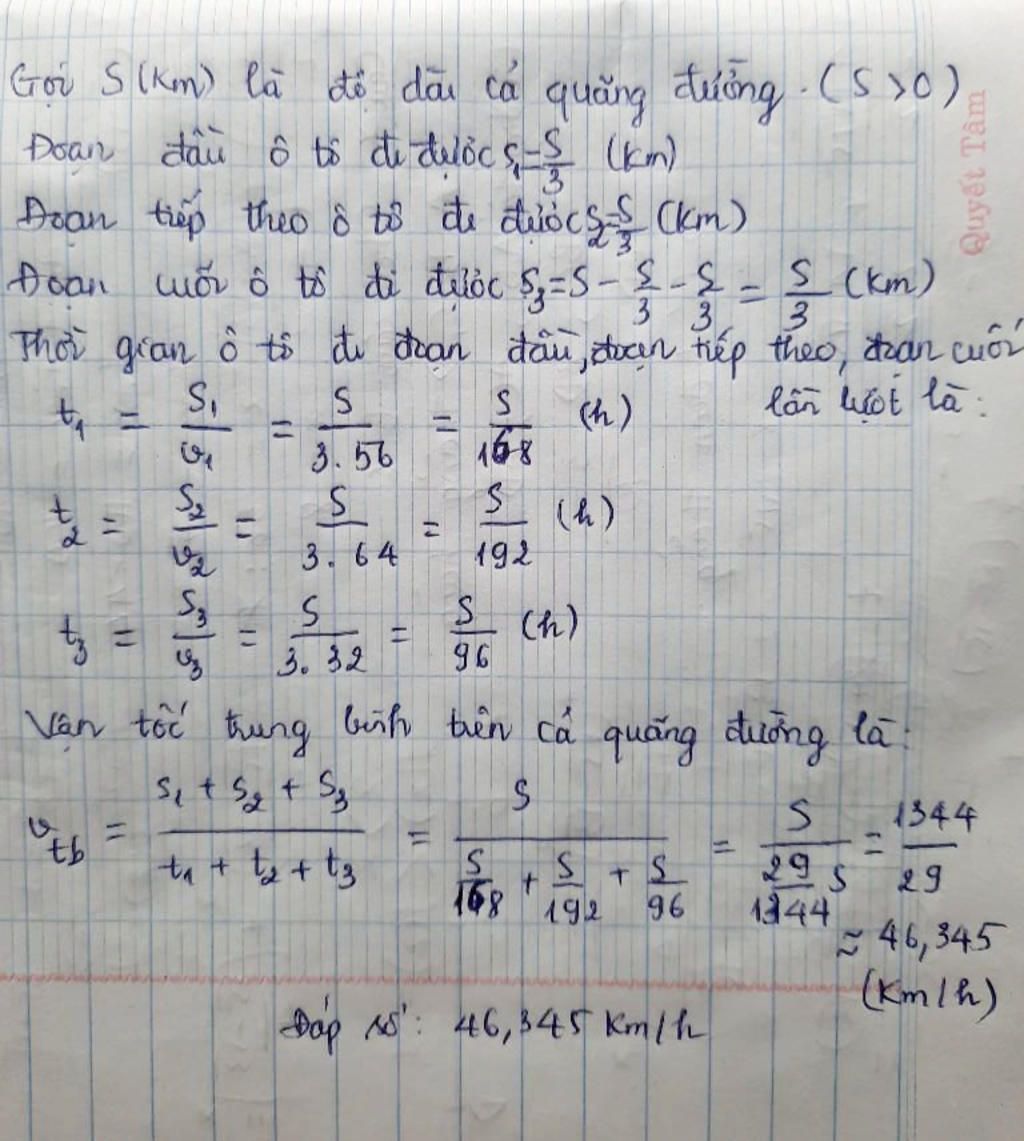 Gọi S (km) là độ dài cả quãng đường. (S > 0)
Quyết Tâm
Đoạn đầu ô tô đi được S₁ = S/3 (km)
Đoạn tiếp theo ô tô đi được S₂ = S/3 (km)
Đoạn cuối ô tô đi được S₃ = S - S/3 - S/3 = S/3 (km)
Thời gian ô tô đi đoạn đầu, đoạn tiếp theo, đoạn cuối
lần lượt là:
t₁ = S₁/v₁ = S/3.56 = S/168 (h)
t₂ = S₂/v₂ = S/3.64 = S/192 (h)
t₃ = S₃/v₃ = S/3.32 = S/96 (h)
Vận tốc trung bình trên cả quãng đường là:
v_tb = (S₁ + S₂ + S₃)/(t₁ + t₂ + t₃) = S/(S/168 + S/192 + S/96) = S/(29/1344 S) = 1344/29
≈ 46,345
(Km/h)
Đáp số: 46,345 Km/h